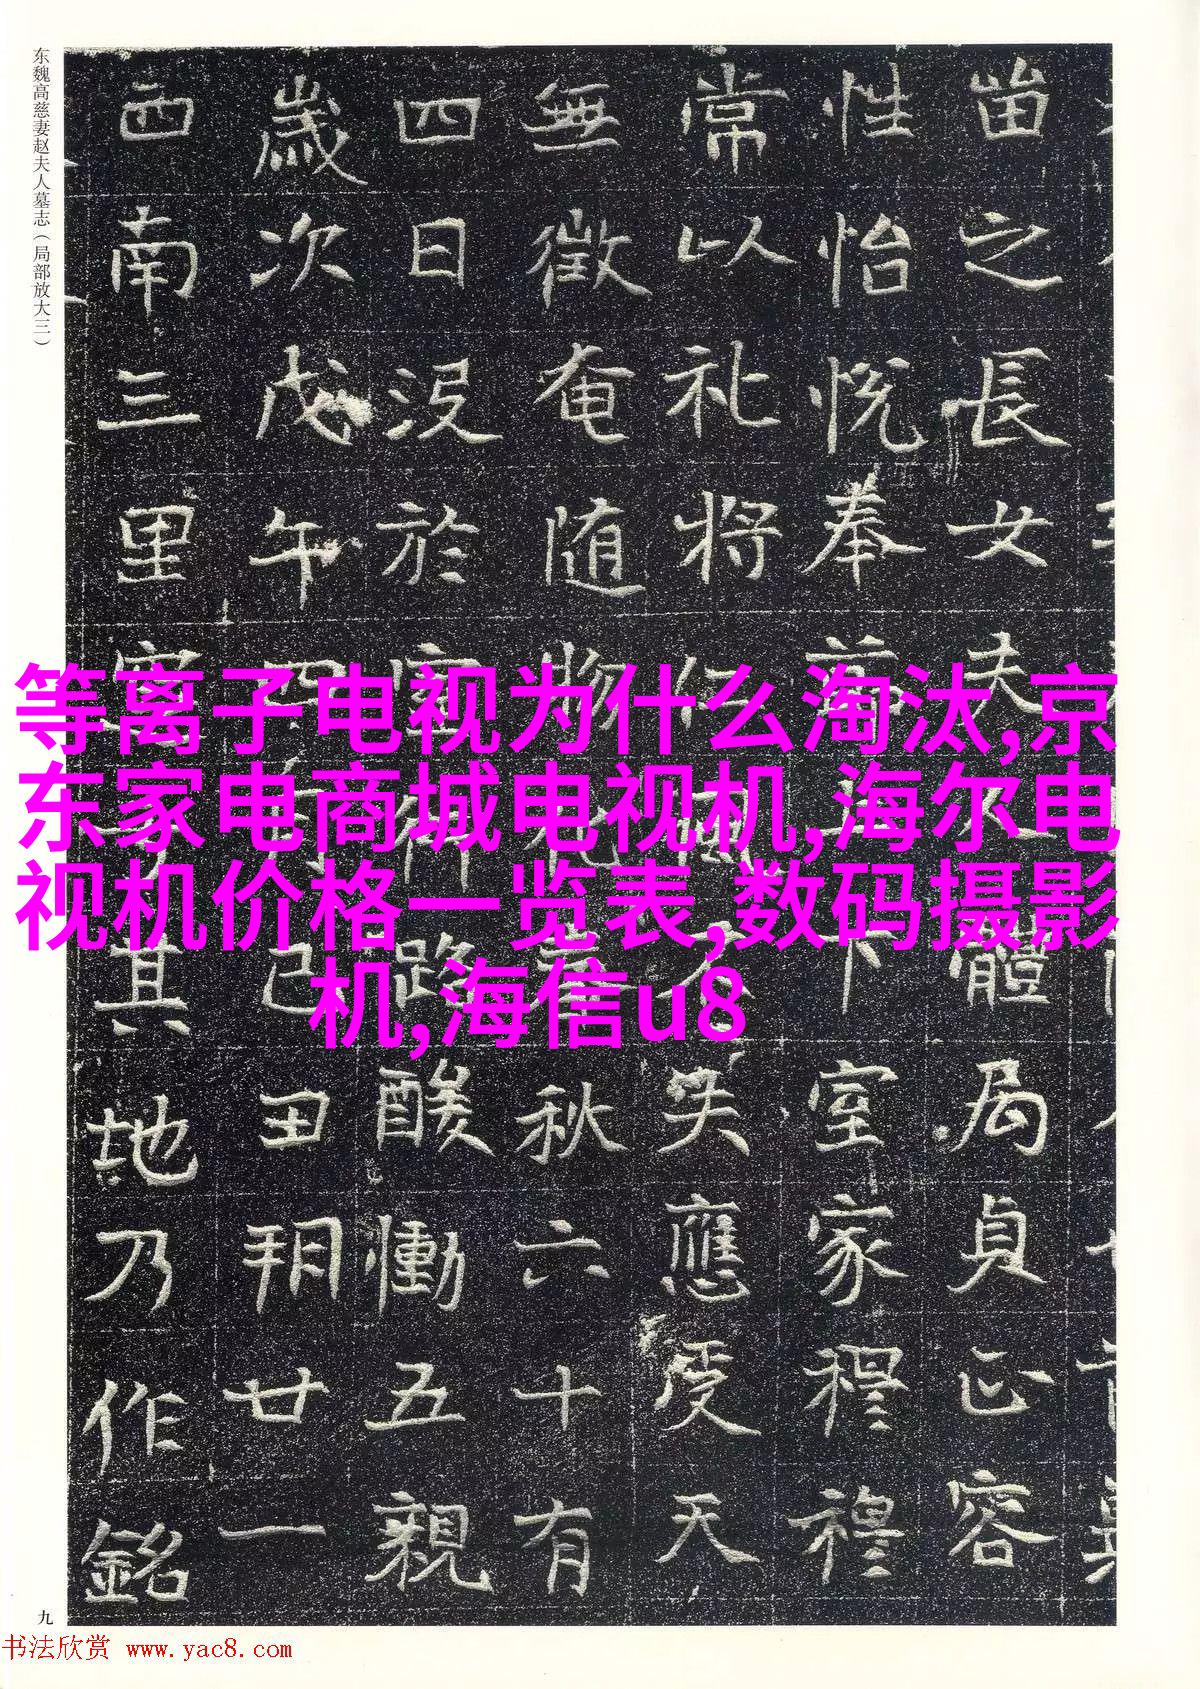 东魏高慈妻赵夫人墓志（局部放大三）
苗之長女夫人體局貞正容
性怡悦奉下室家穆穆
常以礼将仁失應受天
無徵奄随物化春秋六十有
四日没於路酸慟五親
歲次戊午四月己丑朔廿一
西南三里其地乃作銘
等离子电视为什么淘汰,京
东家电商城电视机,海尔电
视机价格一览表,数码摄影
机,海信u8
九
书法欣赏 www.yac8.com